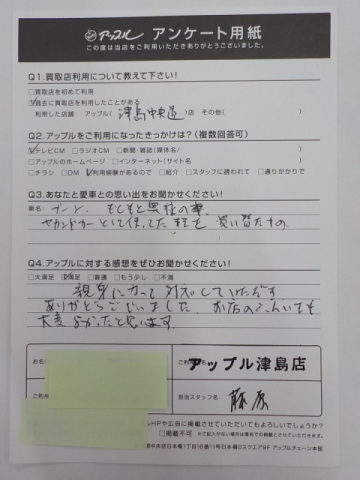 アップル アンケート用紙
この度は当店をご利用いただきありがとうございました。
Q1.買取店利用について教えて下さい!
□買取店を初めて利用
☑過去に買取店を利用したことがある
利用した店舗: アップル( 津島中央道 )店 その他( )
Q2.アップルをご利用になったきっかけは?(複数回答可)
☑テレビCM □ラジオCM □新聞・雑誌(媒体名/ )
□アップルのホームページ □インターネット(サイト名 )
□チラシ □DM ☑利用経験があるので □紹介 □スタッフに誘われて □通りがかりで
Q3.あなたと愛車との思い出をお聞かせください!
車名
もともと
セカンドカーとして使ってた
Q4.アップルに対する感想をぜひお聞かせください!
□大満足 ☑満足 □普通 □もう少し □不満
親身になって対応していただき
ありがとうございました。お店のふんいきも
大変よかったと思います。
お名
アップル津島店
ご利用
担当スタッフ名
藤原
HPや広告に掲載させていただいてもよろしいでしょうか?
□掲載不可 ※ご記入がない場合は匿名でお掲載とさせていただきます。
アップルチェーン本部